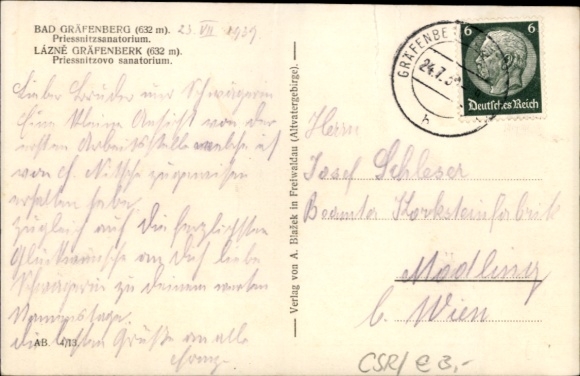 BAD GRÄFENBERG (632 m). 23. VII 1939
Priessnitzsanatorium.
LÁZNĚ GRÄFENBERK (632 m).
Priessnitzovo sanatorium.
Lieber Bruder und Schwägerin
Eine kleine Ansicht von der
ersten Arbeitsstelle welche ich
von H. Nitsche zugewiesen
erhalten habe.
Zugleich auch die herzlichsten
Glückwünsche an Dich liebe
Schwägerin zu deinem werten
Namenstage.
Die besten Grüße an alle
Franz.
AB. 4/13.
Verlag von A. Blažek in Freiwaldau (Altvatergebirge).
GRÄFENBE
24.7.39
6 6
Deutsches Reich
Herrn
Josef Schleser
Beamter Korksteinfabrik
Mödling
b. Wien
CSR/ € 3,-